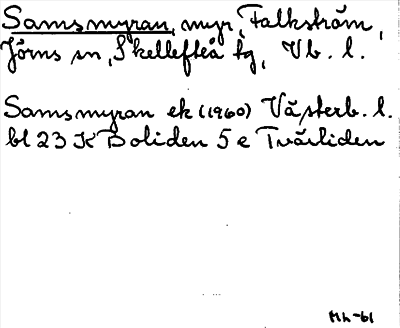 Samsmyran, myr, Falkström,
Jörns sn, Skellefteå tg, Vb. l.
Samsmyran ek (1960) Västerb. l.
bl 23 K Boliden 5 e Tvärliden
Mh-61